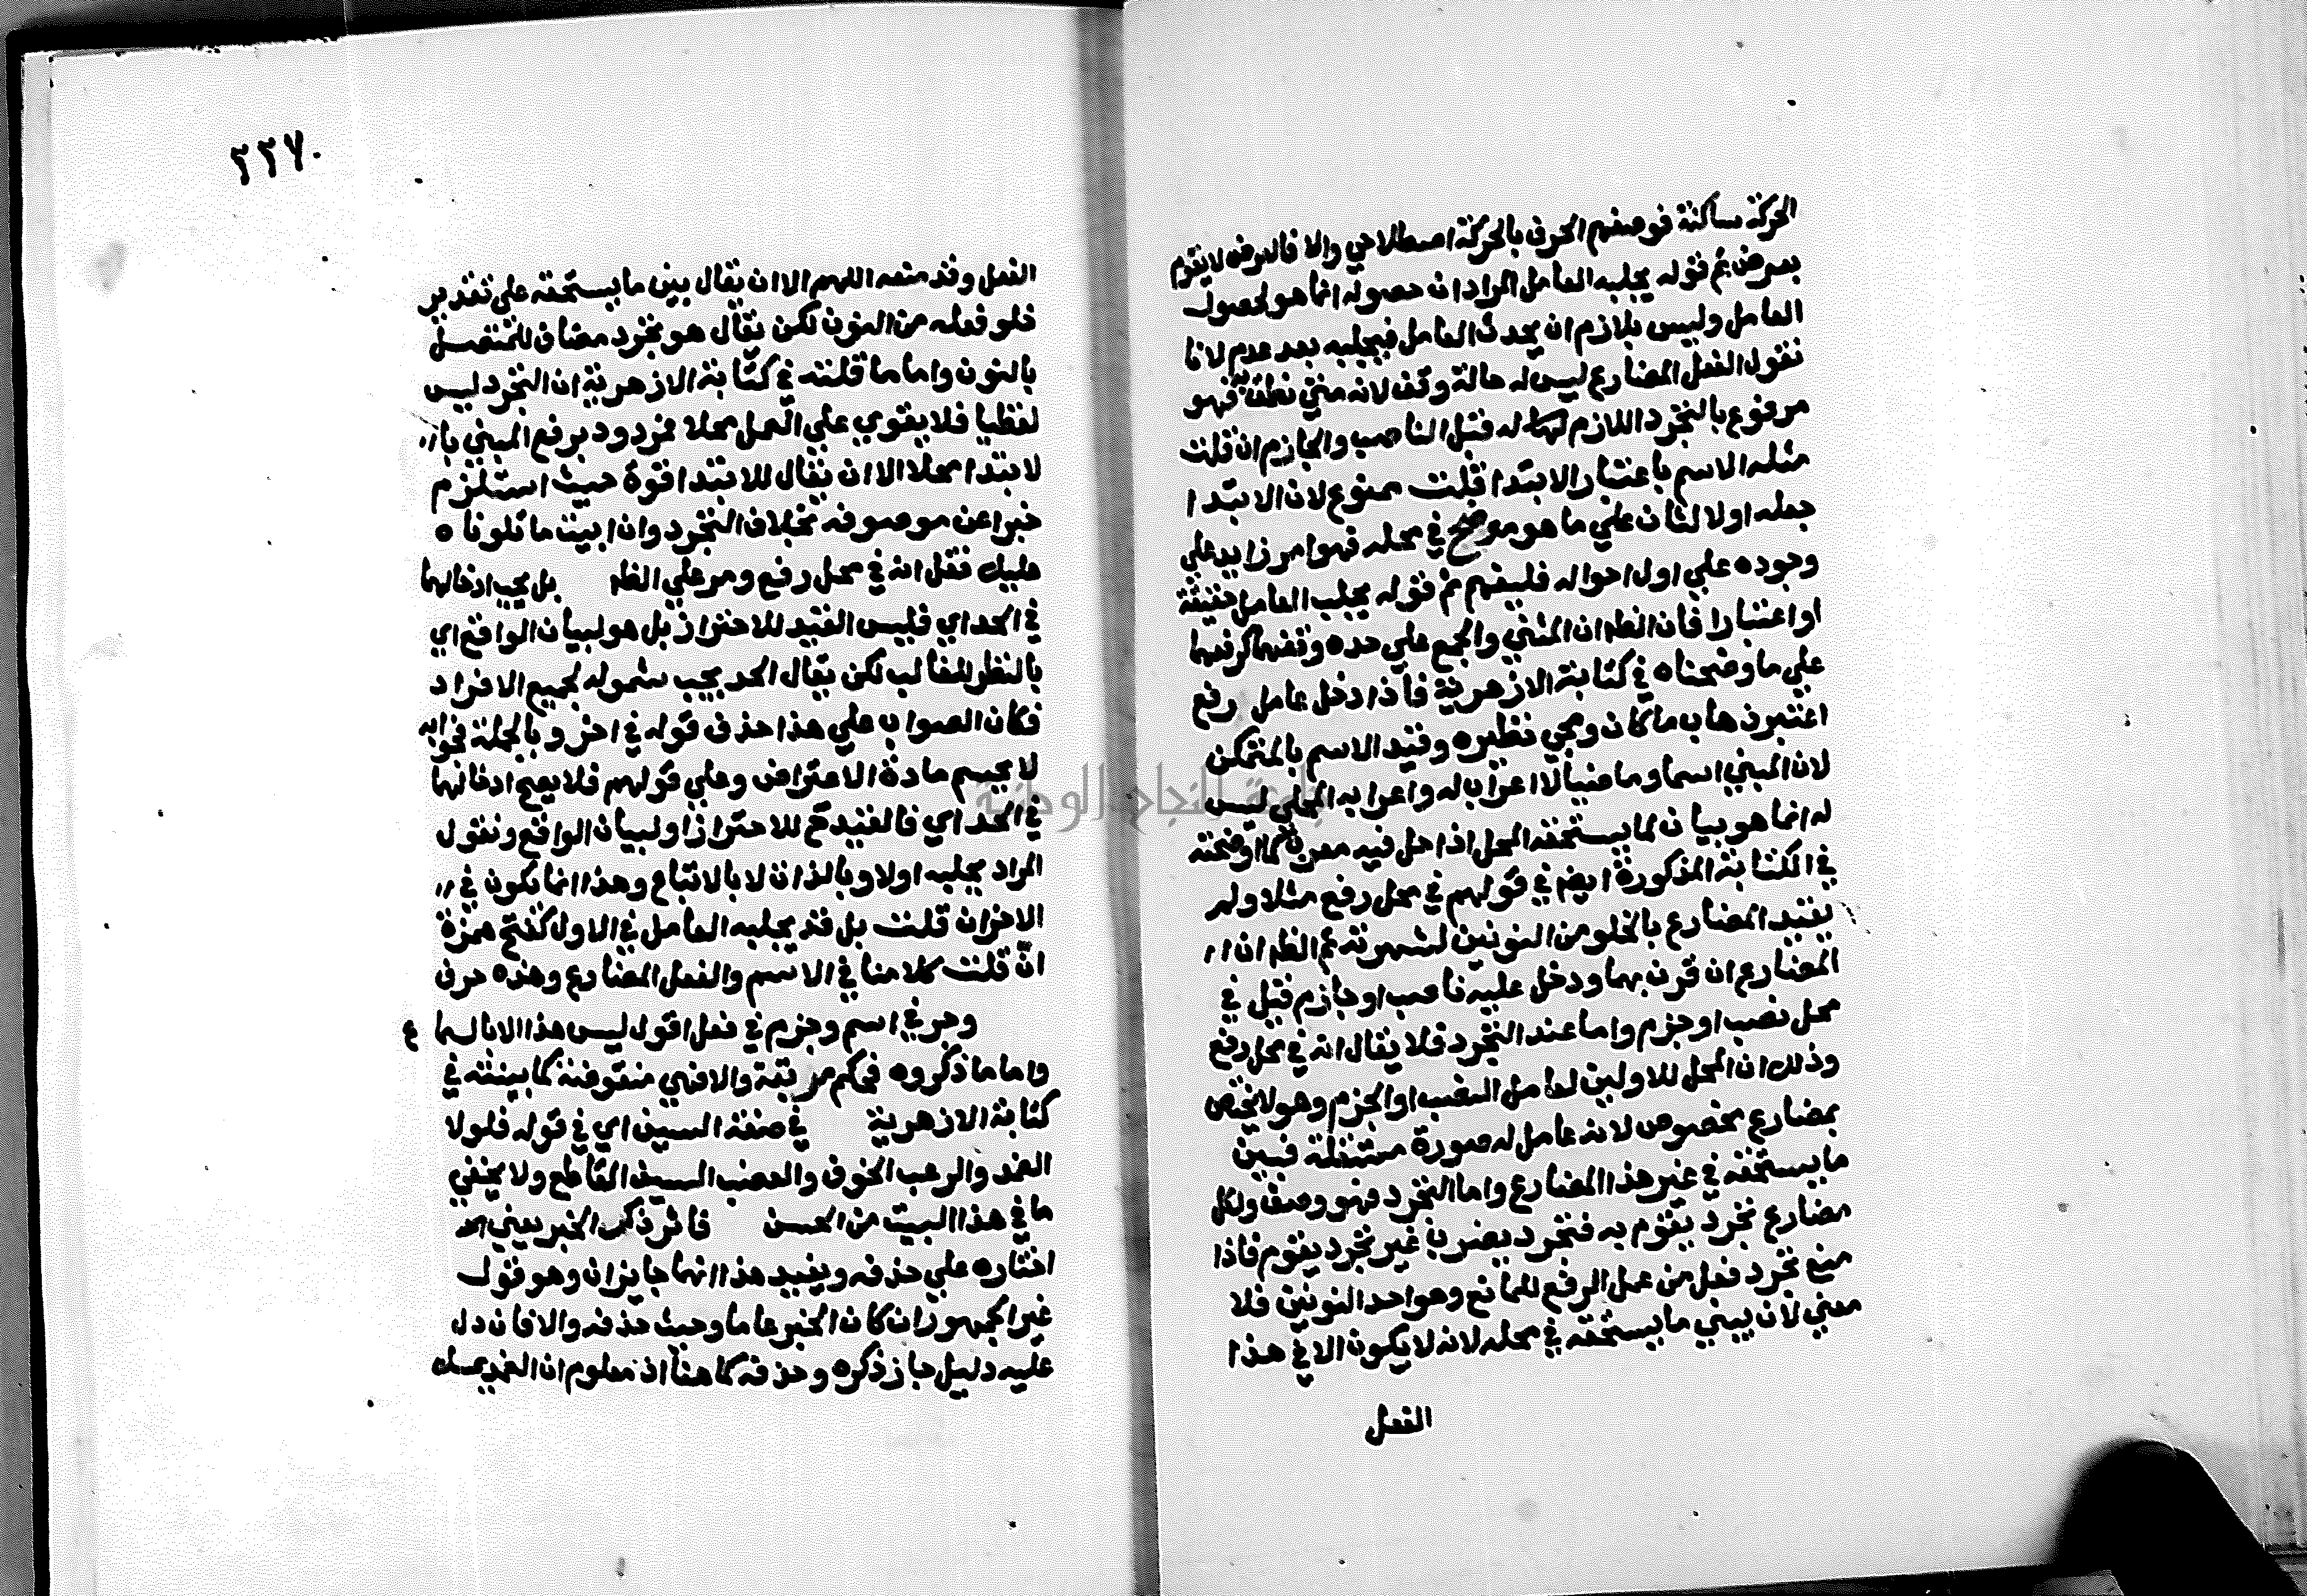 الحركة ساكنة فوصفهم الحرف بالحركة اصطلاحي والا فالعرض لا يقوم
بعرض ثم قوله يجلبه العامل المراد ان حصوله انما هو لحصول
العامل وليس بلازم ان يحدث العامل فيجلبه بعد عدم لانا
نقول الفعل المضارع ليس له حالة وقف لانه متي نطقت به فهو
مرفوع بالتجرد اللازم له قبل الناصب والجازم ان قلت
مثله الاسم باعتبار الابتدا قلت ممنوع لان الابتدا
جعله اولا لثان علي ما هو موضح في محله فهو امر زايد علي
وجوده علي اول احواله فليفهم ثم قوله يجلب العامل حقيقة
او اعتبارا فان الظ ان المثني والجمع علي حده وقفهما كرفعهما
علي ما وضحناه في كتابة الازهرية فاذا دخل عامل رفع
اعتبر ذهاب ما كان ومجي نظيره وقيد الاسم بالمتمكن
لان المبني اسما وماضيا لا اعراب له واعرابه المحلي ليس
له انما هو بيان لما يستحقه المحل اذا حل فيه معرب كما اوضحته
في الكتابة المذكورة ايضا في قولهم في محل رفع مثلا ولم
يقيد المضارع بالخلو من النونين لشهرته ثم الظ ان
المضارع ان قرن بهما ودخل عليه ناصب او جازم قيل في
محل نصب او جزم واما عند التجرد فلا يقال انه في محل رفع
وذلك ان المحل للاولين لعامل النصب او الجزم وهو لا يختص
بمضارع مخصوص لانه عامل له صورة مستقلة فبين
ما يستحقه في غير هذا المضارع واما التجرد فهو وصف ولكل
مضارع تجرد يقوم به فتجرد يضرب غير تجرد يقوم فاذا
منع تجرد فعل من عمل الرفع للمانع وهو احد النونين فلا
معني لان يبني ما يستحقه في محله لانه لا يكون الا في هذا
الفعل
٢٢٧
الفعل وقد منعه اللهم الا ان يقال بين ما يستحقه علي تقدير
خلو فعله من النون لكن يقال هو تجرد مضاف للمتصل
بالنون واما ما قلته في كتابة الازهرية ان التجرد ليس
لفظيا فلا يقوي علي العمل محلا فمردود برفع المبني با
لابتدا محلا الا ان يقال للابتدا قوة حيث استلزم
خبرا عن موصوفه بخلاف التجرد وان ابيت ما تلونا
عليك فقل انه في محل رفع ومر علي الظ بل يجب ادخالهما
في الحد اي فليس القيد للاحتراز بل هو لبيان الواقع اي
بالنظر للغالب لكن يقال الحد يجب شموله لجميع الافراد
فكان الصواب علي هذا حذف قوله في اخر وبالجملة فجوابه
لا يحسم مادة الاعتراض وعلي قولهم فلا يصح ادخالهما
في الحد اي فالقيد ح للاحتراز او لبيان الواقع ونقول
المراد يجلبه اولا وبالذات لا بالاتباع وهذا انما يكون في
الاخر ان قلت بل قد يجلبه العامل في الاول كفتح همزة
ان قلت كلامنا في الاسم والفعل المضارع وهذه حرف
وجر في اسم وجزم في فعل اقول ليس هذا الا بالسماع
واما ما ذكروه فحكم مربقة والا فهي منقوضة كما بينته في
كتابة الازهرية في صفة السيف اي في قوله فلولا
الغمد والرعب الخوف والعضب السيف القاطع ولا يخفي
ما في هذا البيت من الحسن فاثر ذكر الخبر يعني
اختاره علي حذفه ويفيد هذا انهما جايزان وهو قول
غير الجمهور ان كان الخبر عاما وجب حذفه والا فان دل
عليه دليل جاز ذكره وحذفه كما هنا اذ معلوم ان الغمد يمسك
جامعة النجاح الوطنية